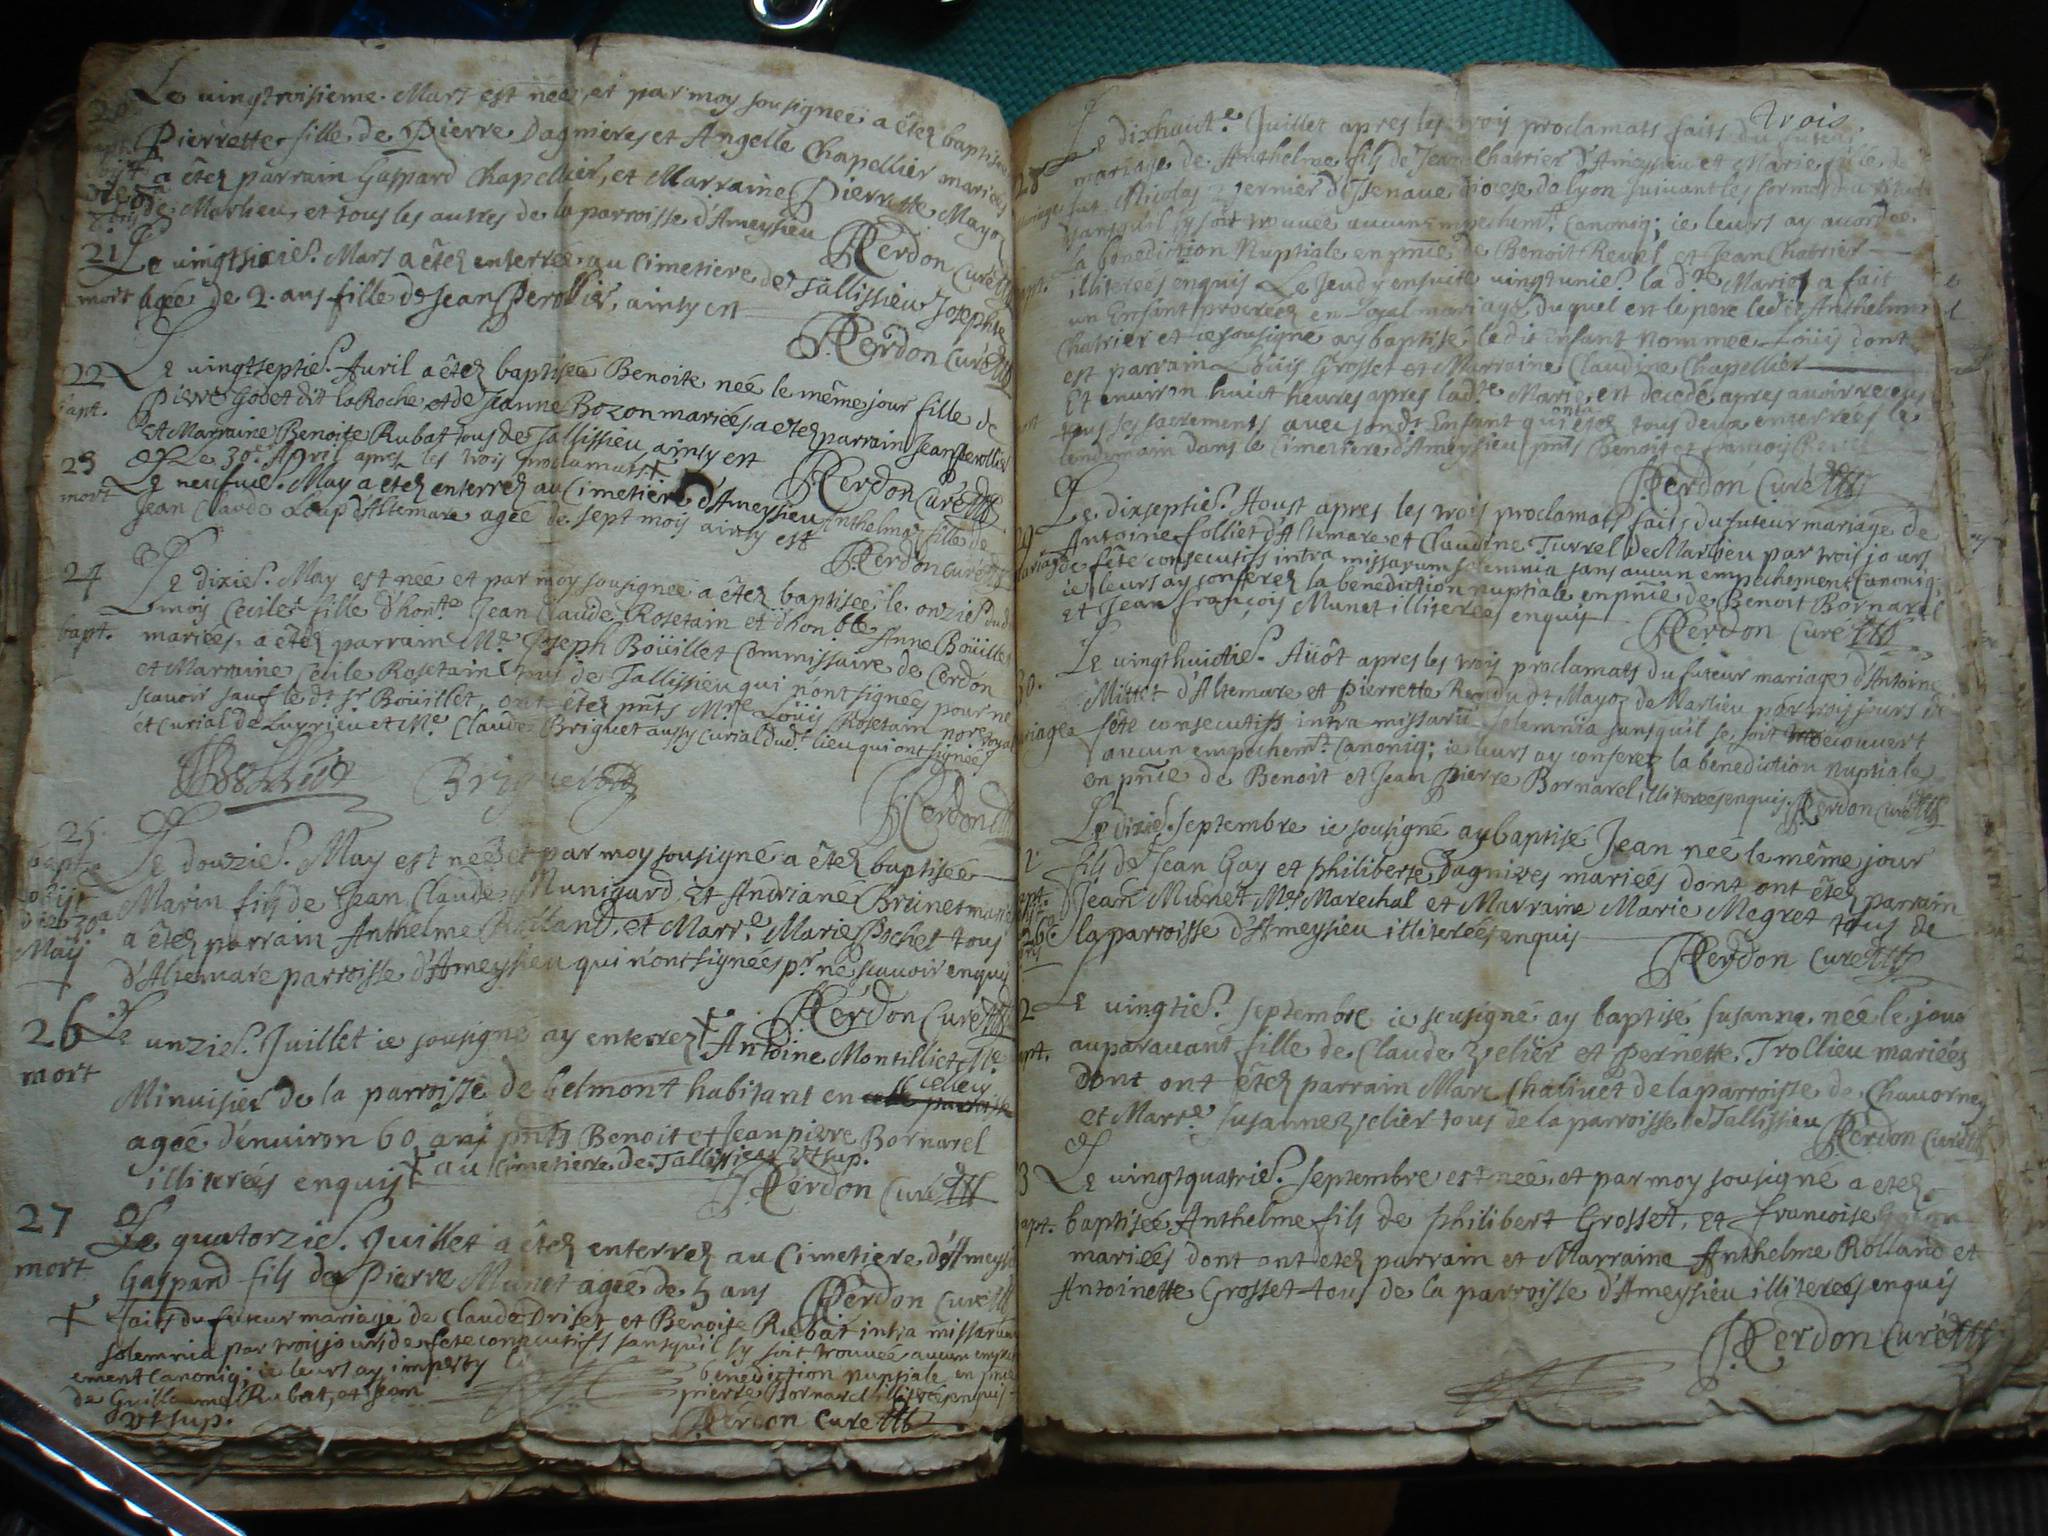 Le vingtroisieme Mars est née et par moy sousignee a êtez baptisee
Pierrette fille de Pierre Dagnieres et Angelle Chapellier mariées
a êtez parrain Gaspard Chapellier, et Marraine Pierrette Mayoz
de Marlieu, et tous les autres de la parroisse d'Ameysieu
Perdon Curé
21 Le vingtsixie. Mars a êtez enterrée au Cimetiere de Tallissieu Josephte
mort agée de 2. ans fille de Jean Perollier, ainsy est
Perdon Curé
22 Le vingtseptie. Avril a êtez baptisée Benoite née le même jour fille de
bapt. Pierre Godet dit la Roche et de Jeanne Bozon mariées, a etez parrain Jean Perollier
Et Marraine Benoite Rubat tous de Tallissieu ainsy est
Perdon Curé
Le 30e. Avril apres les trois proclamats +
23 Le neufvie. May a etez enterrez au Cimetiere d'Ameysieu Anthelme fille de
mort Jean Claude Loup d'Altemare agée de sept mois ainsy est
Perdon Curé
24 Le dixie. May est née et par moy sousignée a êtez baptisée le onzie. dud.
mois Cecile fille d'honte. Jean Claude Rosetain et d'honble Anne Boüillet
bapt. mariées, a êtez parrain Mr. Joseph Boüillet Commissaire de Cerdon
et Marraine Cecile Rosetain tous de Tallissieu qui n'ont signées pour ne
scavoir sauf le dt. sr. Boüillet, ont êtez pnts Mre Loüis Rosetain nore royal
et Curial de Luyrieu et Me. Claude Briguet aussy Curial dud. lieu qui ont signée
Boüillet Briguet Perdon
25. Le douzie. May est née et par moy sousigné a êtez baptisée
bapt. Marin fils de Jean Claude Munigard Et Andriane Brunet mariées
a êtez parrain Anthelme Rolland, et Marre. Marie Pochet tous
May d'Altemare parroisse d'Ameysieu qui n'ont signées pr. ne scavoir enquis
Perdon Curé
26 Le unzie. Juillet ie sousigné ay enterrez + Antoine Montilliet Me.
mort Minuisier de la parroisse de belmont habitant en ce lieu
agée d'environ 60 ans pnts Benoit et Jean pierre Bornarel
illiterées enquis + au Cimetiere de Tallissieu vt sup.
Perdon Curé
27 Le quatorzie. Juillet a êtez enterrez au Cimetiere d'Ameysieu
mort Gaspard fils de Pierre Munet agée de 5 ans
Perdon Curé
+ faits du futeur mariage de Claude Driset et Benoite Rubat intra missarum
solemnia par trois jours de fete consecutifs sans qu'il sy soit trouvée aucun empech
ement Canoniq; ie leurs ay imparty la benediction nuptiale en pnce
de Guillaume Rubat, et Jean pierre Bornarel illiterées enquis
vt sup.
Perdon Curé
Trois.
28 Le dixhuite. Juillet apres les trois proclamats faits du futeur
mariage de Anthelme fils de Jean Chatrier d'Ameysieu et Marie fille de
mariage fut Nicolas Vernier d'Izenave diocese de lyon suivant les formes du rituel
sans qu'il sy soit trouvée aucun empechemt. Canoniq; ie leurs ay accordée
la benediction Nuptiale en pnce de Benoit Revel et Jean Chatrier
bapt. illiterées enquis Le Jeudy ensuite vingtunie. la dte. Marie a fait
un Enfant procréez en Loyal mariage duquel en le pere ledit Anthelme
Chatrier et ie sousigné ay baptisé le dit enfant nommée Loüis dont
est parrain Loüis Grosset et Marraine Claudine Chapellier
Et environ huict heures apres ladte. Marie est decedé apres avoir receus
mort tous ses sacrements avec sondt. Enfant qui ont êtez tous deux enterrées le
lendemain dans le Cimetiere d'Ameysieu pnts Benoit et françois Revel
Perdon Curé
29 Le dixseptie. Aoust apres les trois proclamats faits du futeur mariage de
Antoine folliet d'Altemare et Claudine Turrel de Marlieu par trois jours
mariage de fête consecutifs intra missarum solemnia sans aucun empechement Canoniq;
ie leurs ay conferez la benediction nuptiale en pnce de Benoit Bornarel
et Jean françois Munet illiterées enquis
Perdon Curé
30. Le vingthuictie. Aüôt apres les trois proclamats du futeur mariage d'Antoine
Mittet d'Altemare et Pierrette dt. Mayoz de Marlieu par trois jours de
mariage fête consecutifs intra missarū solemnia sans qu'il se soit decouvert
aucun empechemt. Canoniq; ie leurs ay conferez la benediction nuptiale
en pnce de Benoit et Jean Pierre Bornarel illiterées enquis. Perdon Curé
Le dixie. septembre ie sousigné ay baptisé Jean née le même jour
fils de Jean Gay et philiberte Dagnieres mariées dont ont êtez parrain
bapt. Jean Munet Me Marechal et Marraine Marie Megret tous de
la parroisse d'Ameysieu illiterées enquis
Perdon Curé
2 Le vingtie. septembre ie sousigné ay baptisé Susanne née le jour
bapt. auparavant fille de Claude Velier et Pernette Trollieu mariées
dont ont êtez parrain Marc Chalivet de la parroisse de Chavorney
et Marre. Susanne Velier tous de la parroisse de Tallissieu
Perdon Curé
3 Le vingtquatrie. septembre est née et par moy sousigné a etez
bapt. baptisée Anthelme fils de philibert Grosset, Et francoise
mariées dont ont etez parrain et Marraine Anthelme Rolland et
Antoinette Grosset tous de la parroisse d'Ameysieu illiterées enquis
Perdon Curé